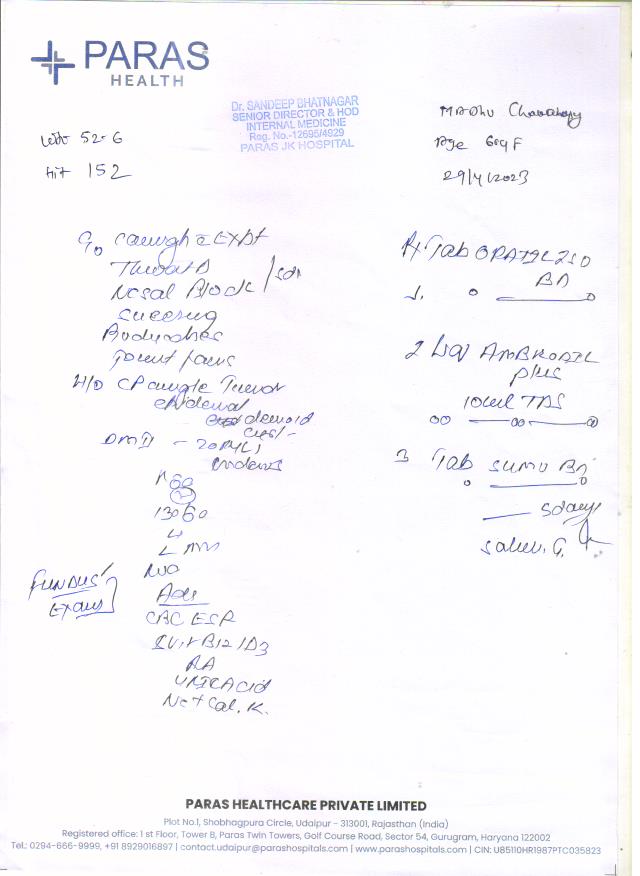 PARAS
HEALTH
Dr. SANDEEP BHATNAGAR
SENIOR DIRECTOR & HOD
INTERNAL MEDICINE
Reg. No.-12695/4929
PARAS JK HOSPITAL
Madhu
Age 60y F
29/4/2023
52.6
Hit 152
Throat
Nasal Block
Sneezing
Bodyaches
H/O CP angle Tumor
epidermal
demoid
cyst
DM II - 20
60
130/60
FUNDUS
Exam
Adv
CBC ESR
B12/D3
RA
URIC Acid
Na+ Cal. K.
Rx Tab 250
BD
1.
2 AMBRODIL
plus
10ml TDS
3 Tab SUMO BD
5days
PARAS HEALTHCARE PRIVATE LIMITED
Plot No.1, Shobhagpura Circle, Udaipur - 313001, Rajasthan (India)
Registered office: 1 st Floor, Tower B, Paras Twin Towers, Golf Course Road, Sector 54, Gurugram, Haryana 122002
Tel.: 0294-666-9999, +91 8929016897 | contact.udaipur@parashospitals.com | www.parashospitals.com | CIN: U85110HR1987PTC035823